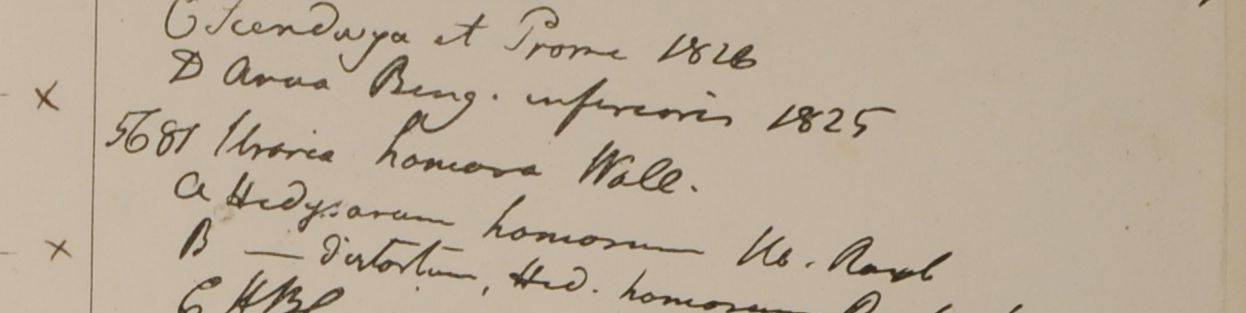 C Icenduya et Prome 1826
D Arva Beng. inferioris 1825
5681 Uraria hamosa Wall.
a Hedysarum hamosum Hb. Roxb
B — distortum, Hed. hamosum
C HBC